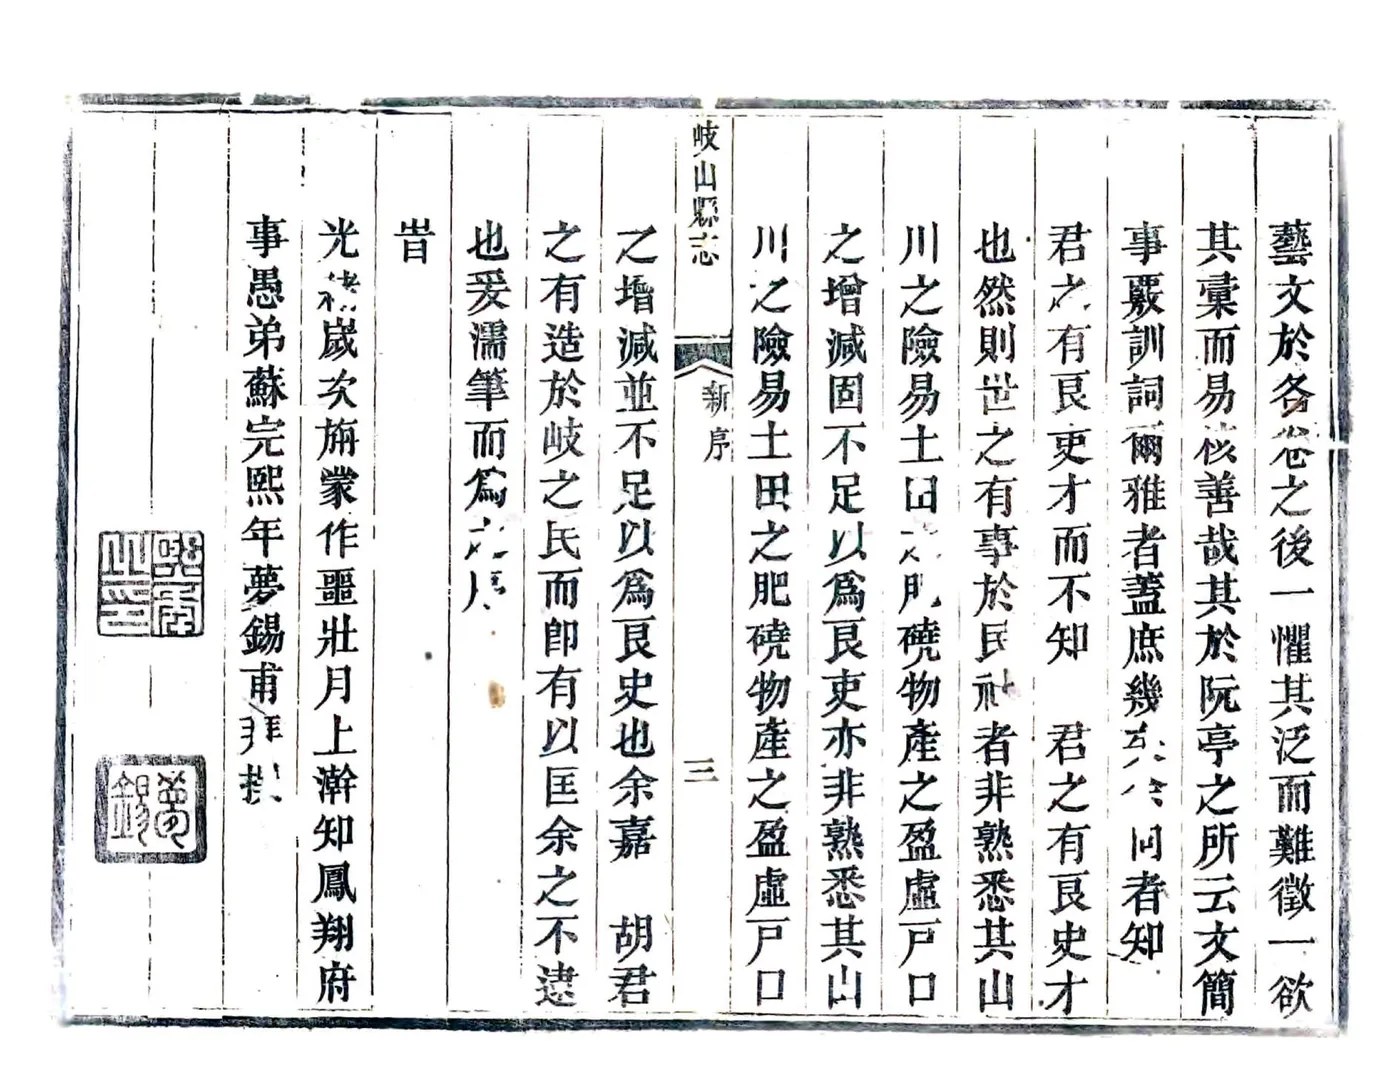 藝文於各卷之後一懼其泛而難徵一欲
其彙而易核善哉其於阮亭之所云文簡
事覈訓詞爾雅者蓋庶幾矣 同者知
君之有良吏才而不知 君之有良史才
也然則世之有事於民社者非熟悉其山
川之險易土田之肥磽物產之盈虛戶口
之增減固不足以爲良吏亦非熟悉其山
川之險易土田之肥磽物產之盈虛戶口
岐山縣志
新序
三
之增減並不足以爲良史也余嘉 胡君
之有造於岐之民而即有以匡余之不逮
也爰濡筆而爲之序
旹
光緒歲次旃蒙作噩壯月上澣知鳳翔府
事愚弟蘇完熙年夢錫甫拜撰
熙年之印
夢錫